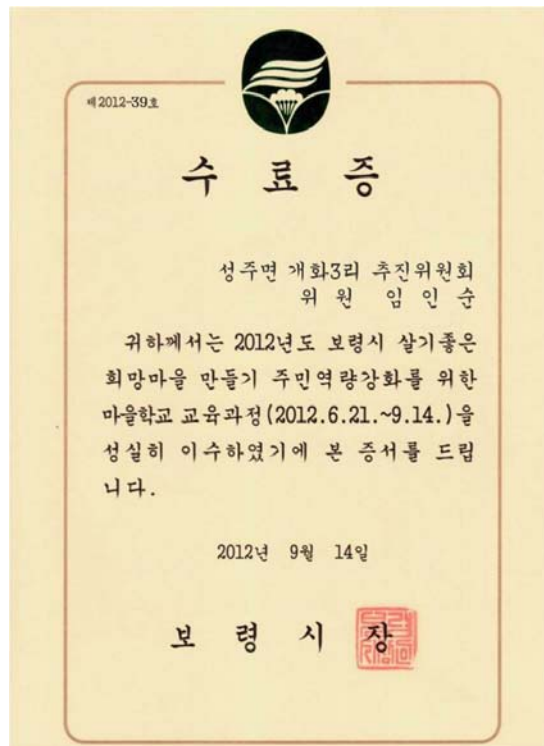 제2012-39호
수 료 증
성주면 개화3리 추진위원회
위 원 임 인 순
귀하께서는 2012년도 보령시 살기좋은
희망마을 만들기 주민역량강화를 위한
마을학교 교육과정(2012.6.21.~9.14.)을
성실히 이수하였기에 본 증서를 드립
니다.
2012년 9월 14일
보 령 시 장